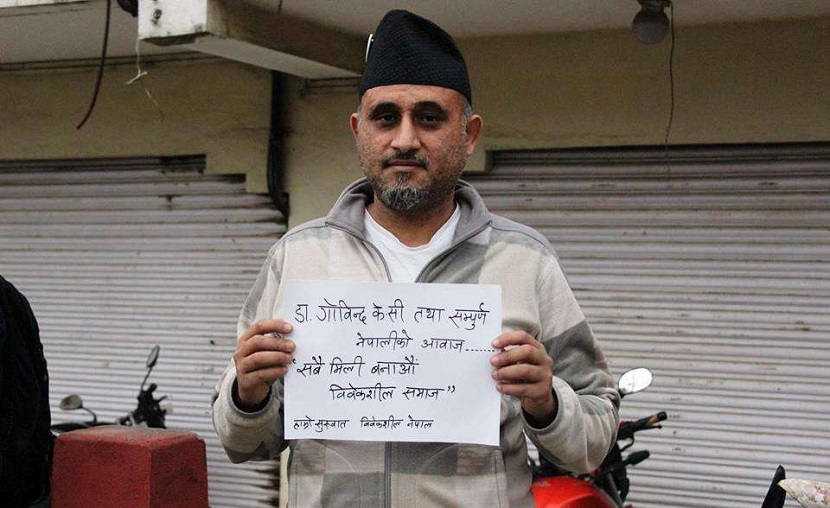 डा. गोविन्द के सी तथा सम्पुर्ण
नेपालीको आवाज........
"सबै मिली बनाऔं
विवेकशील समाज"
हाम्रो सुरुवात विवेकशील नेपाल